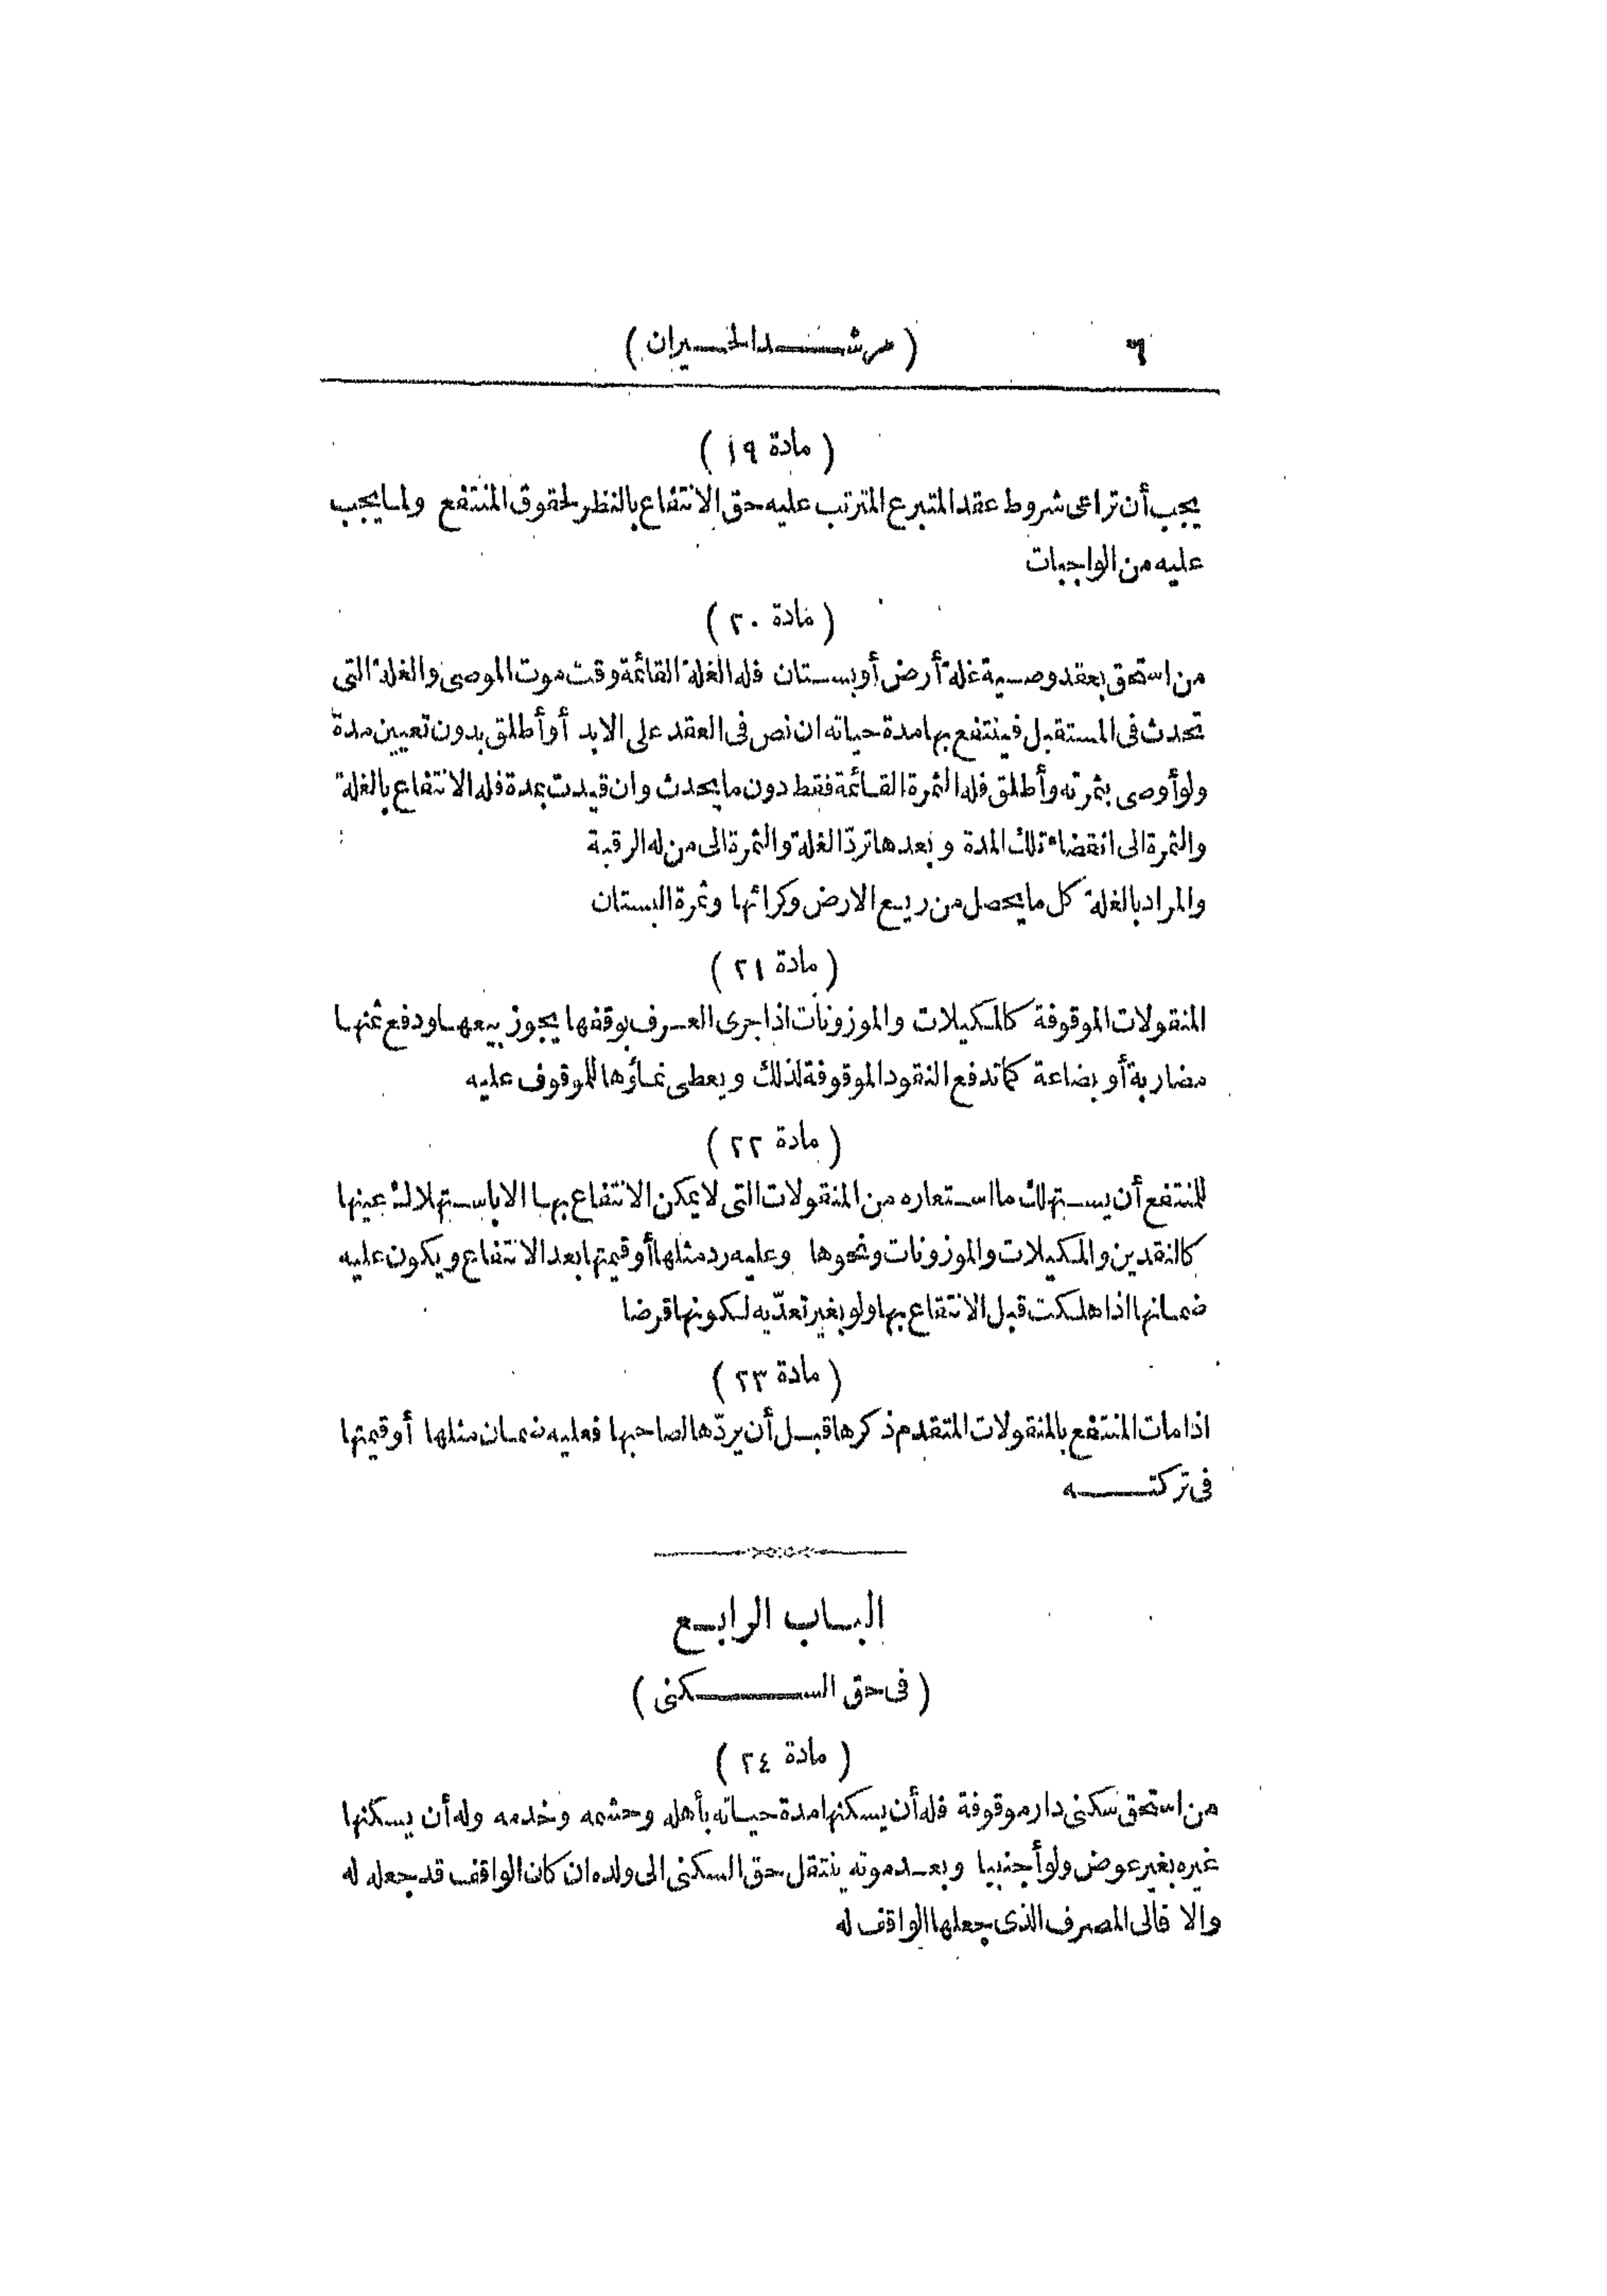 ٦
( مرشد الحيران )
( مادة ١٩ )
يجب أن تراعى شروط عقد المتبرع المترتب عليه حق الانتفاع بالنظر لحقوق المنتفع ولما يجب
عليه من الواجبات
( مادة ٢٠ )
من استحق بعقد وصية غلة أرض أو بستان فله الغلة القائمة وقت موت الموصى والغلة التى
تحدث فى المستقبل فينتفع بها مدة حياته ان نص فى العقد على الابد أو أطلق بدون تعيين مدة
ولو أوصى بثمرته وأطلق فله الثمرة القائمة فقط دون ما يحدث وان قيدت بمدة فله الانتفاع بالغلة
والثمرة الى انقضاء تلك المدة وبعدها تردّ الغلة والثمرة الى من له الرقبة
والمراد بالغلة كل ما يحصل من ريع الارض وكرائها وثمرة البستان
( مادة ٢١ )
المنقولات الموقوفة كالمكيلات والموزونات اذا جرى العرف بوقفها يجوز بيعها ودفع ثمنها
مضاربة أو بضاعة كما تدفع النقود الموقوفة لذلك ويعطى نماؤها للموقوف عليه
( مادة ٢٢ )
للمنتفع أن يستهلك ما استعاره من المنقولات التى لا يمكن الانتفاع بها الا باستهلاك عينها
كالنقدين والمكيلات والموزونات ونحوها وعليه رد مثلها أو قيمتها بعد الانتفاع ويكون عليه
ضمانها اذا هلكت قبل الانتفاع بها ولو بغير تعدّيه لكونها قرضا
( مادة ٢٣ )
اذا مات المنتفع بالمنقولات المتقدم ذكرها قبل أن يردّها لصاحبها فعليه ضمان مثلها أو قيمتها
فى تركته
الباب الرابع
( فى حق السكنى )
( مادة ٢٤ )
من استحق سكنى دار موقوفة فله أن يسكنها مدة حياته بأهله وحشمه وخدمه وله أن يسكنها
غيره بغير عوض ولو أجنبيا وبعد موته ينتقل حق السكنى الى ولده ان كان الواقف قد جعله له
والا فالى المصرف الذى جعلها الواقف له